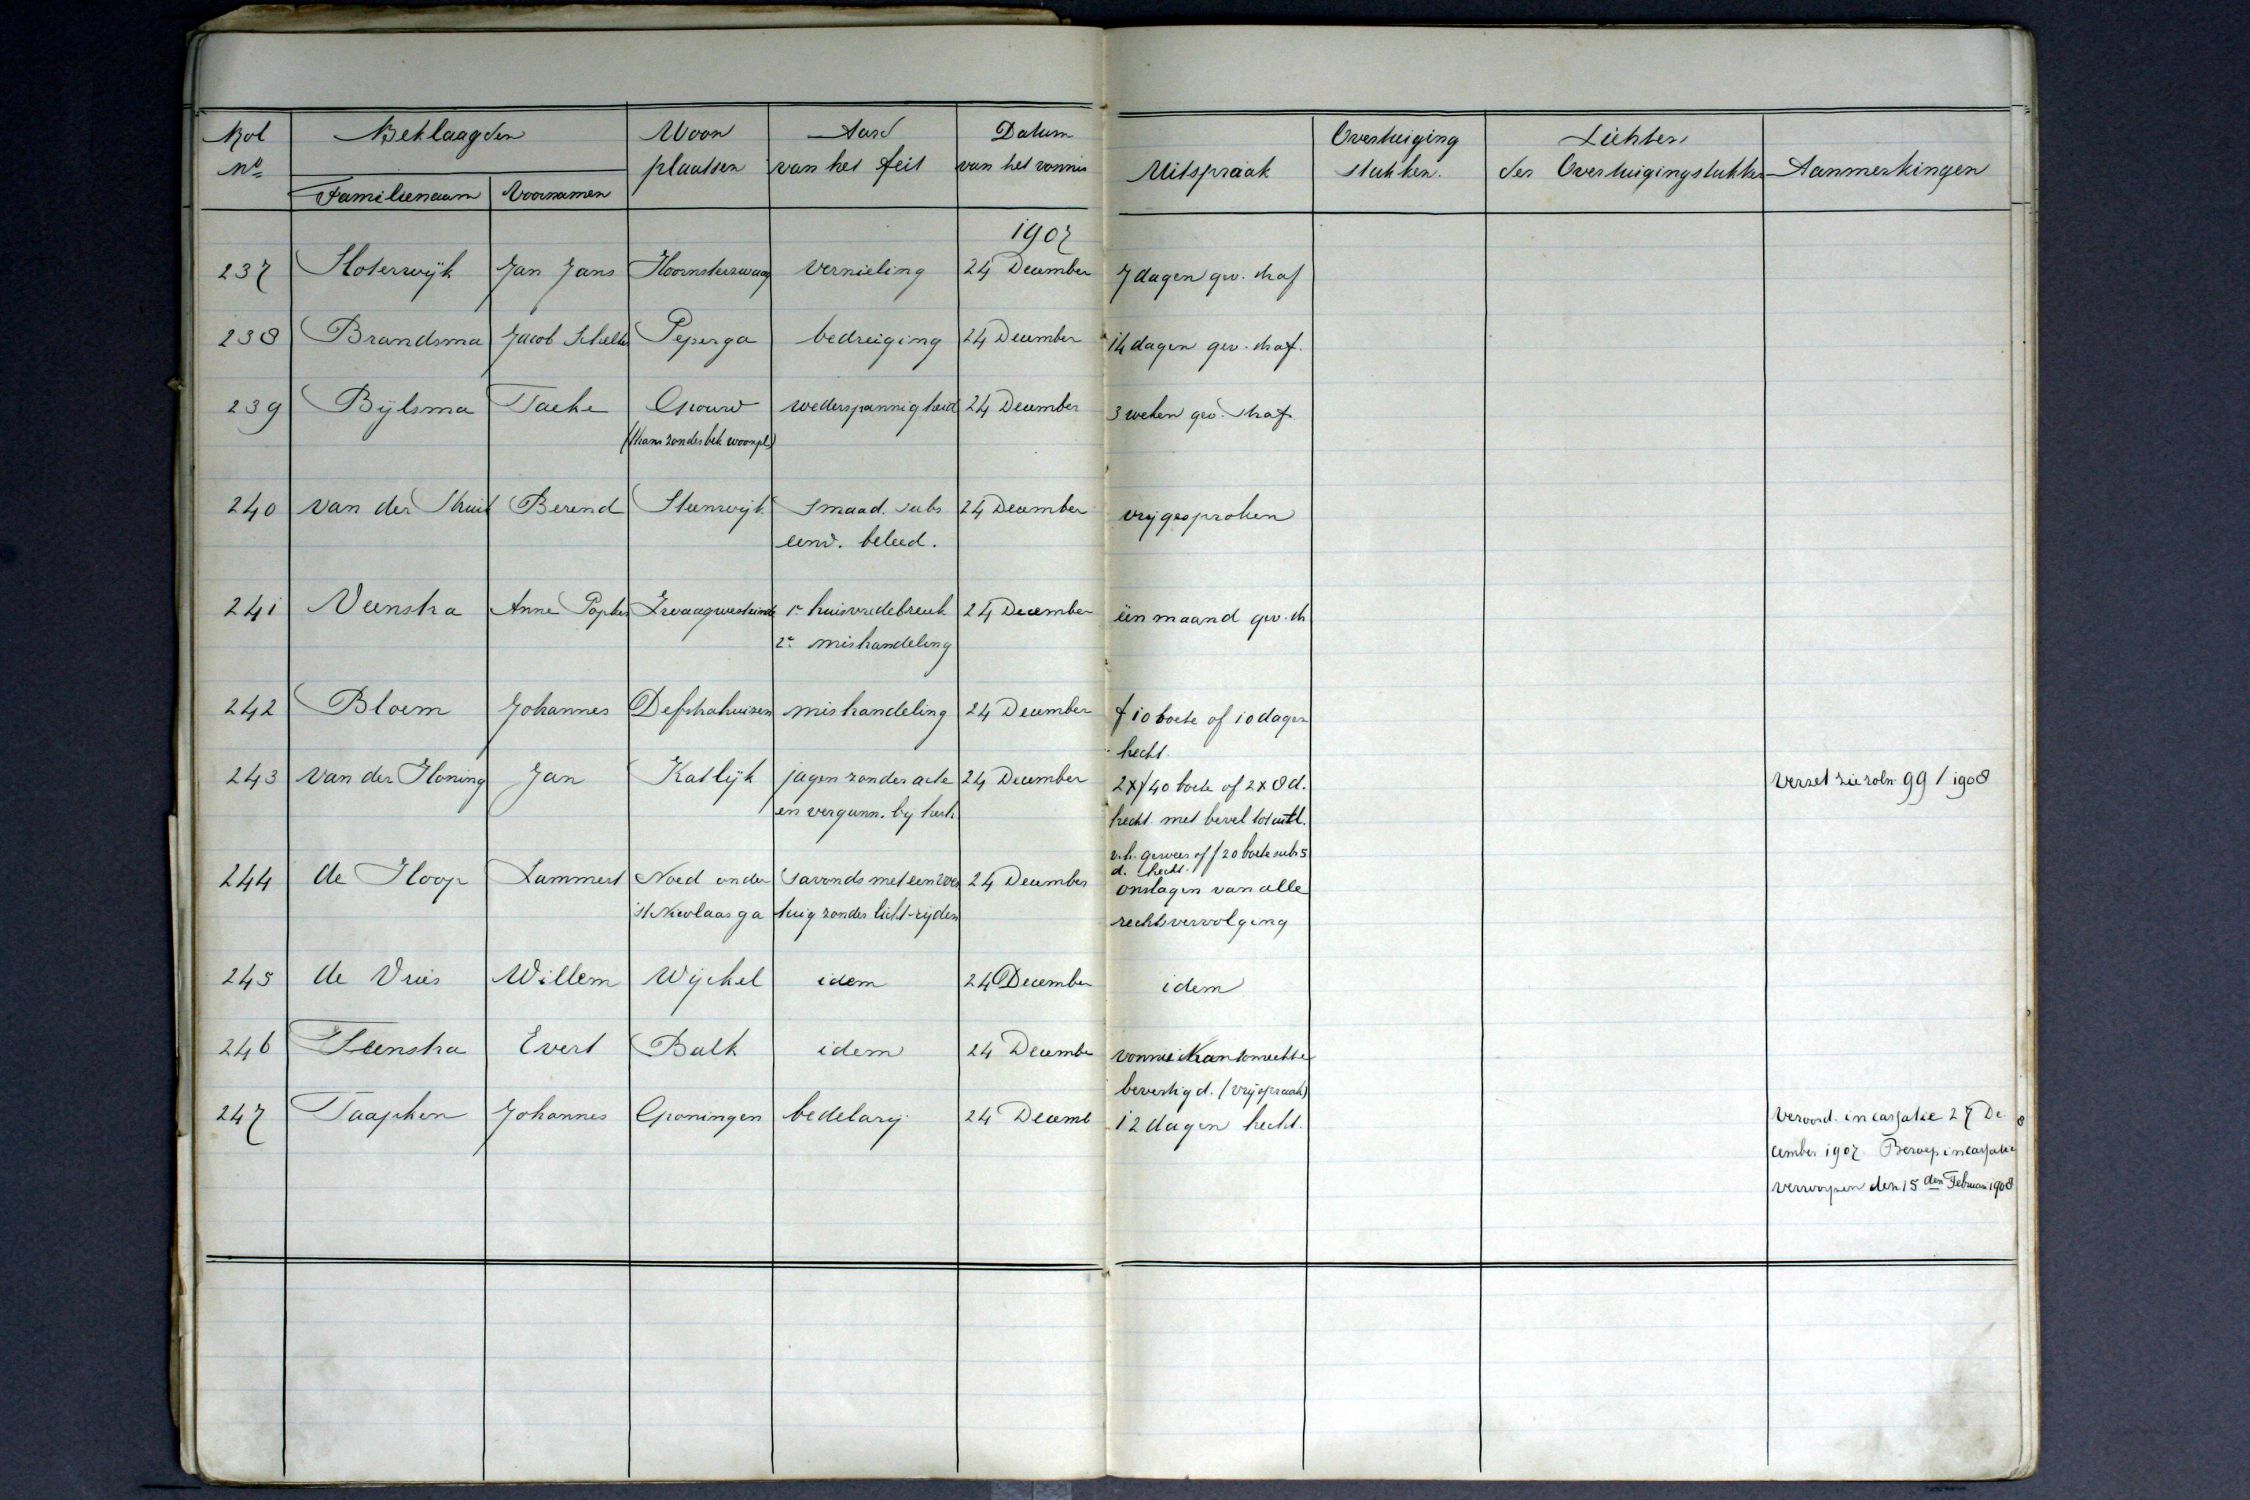 Rol Beklaagden Woon Aard Datum
No plaatsen van het feit van het vonnis
Familienaam Voornamen
Overtuiging Lichten
Uitspraak stukken. der Overtuigingstukken Aanmerkingen
1907
237 Sloterwijk Jan Jans Hoornsterzwaag vernieling 24 December 7 dagen gev. straf
238 Brandsma Jacob Schelte Peperga bedreiging 24 December 14 dagen gev. straf.
239 Bijlsma Taeke Grouw wederspannigheid 24 December 3 weken gev. straf.
(thans zonder bek woonpl)
240 van der Sluis Berend Steenwijk smaad. subs 24 December vrijgesproken
eenv. beleed.
241 Veenstra Anne Popkes Zwaagwesteinde 1e huisvredebreuk 24 December één maand gev. st
2e mishandeling
242 Bloem Johannes Delfstrahuizen mishandeling 24 December f 10 boete of 10 dagen
hecht.
243 van der Honing Jan Katlijk jagen zonder acte 24 December 2 x f 40 boete of 2 x 8 d. Verzet zie roln 99 / 1908
en vergunn. bij herh. hecht. met bevel tot uitl.
v.h. geweer of f 20 boete subs 5
d. hecht.
244 de Hoop Lammert Noed onder 's avonds met een voer 24 December onslagen van alle
St Nicolaasga tuig zonder licht rijden rechtsvervolging
245 de Vries Willem Wijckel idem 24 December idem
246 Feenstra Evert Balk idem 24 Decembe vonnis Kantonrechter
bevestigd. (vrijspraak)
247 Taapken Johannes Groningen bedelarij 24 Decemb 12 dagen hecht. Veroord. in cassatie 27 De
cember 1907. Beroep in cassatie
verworpen den 15 den Februari 1908